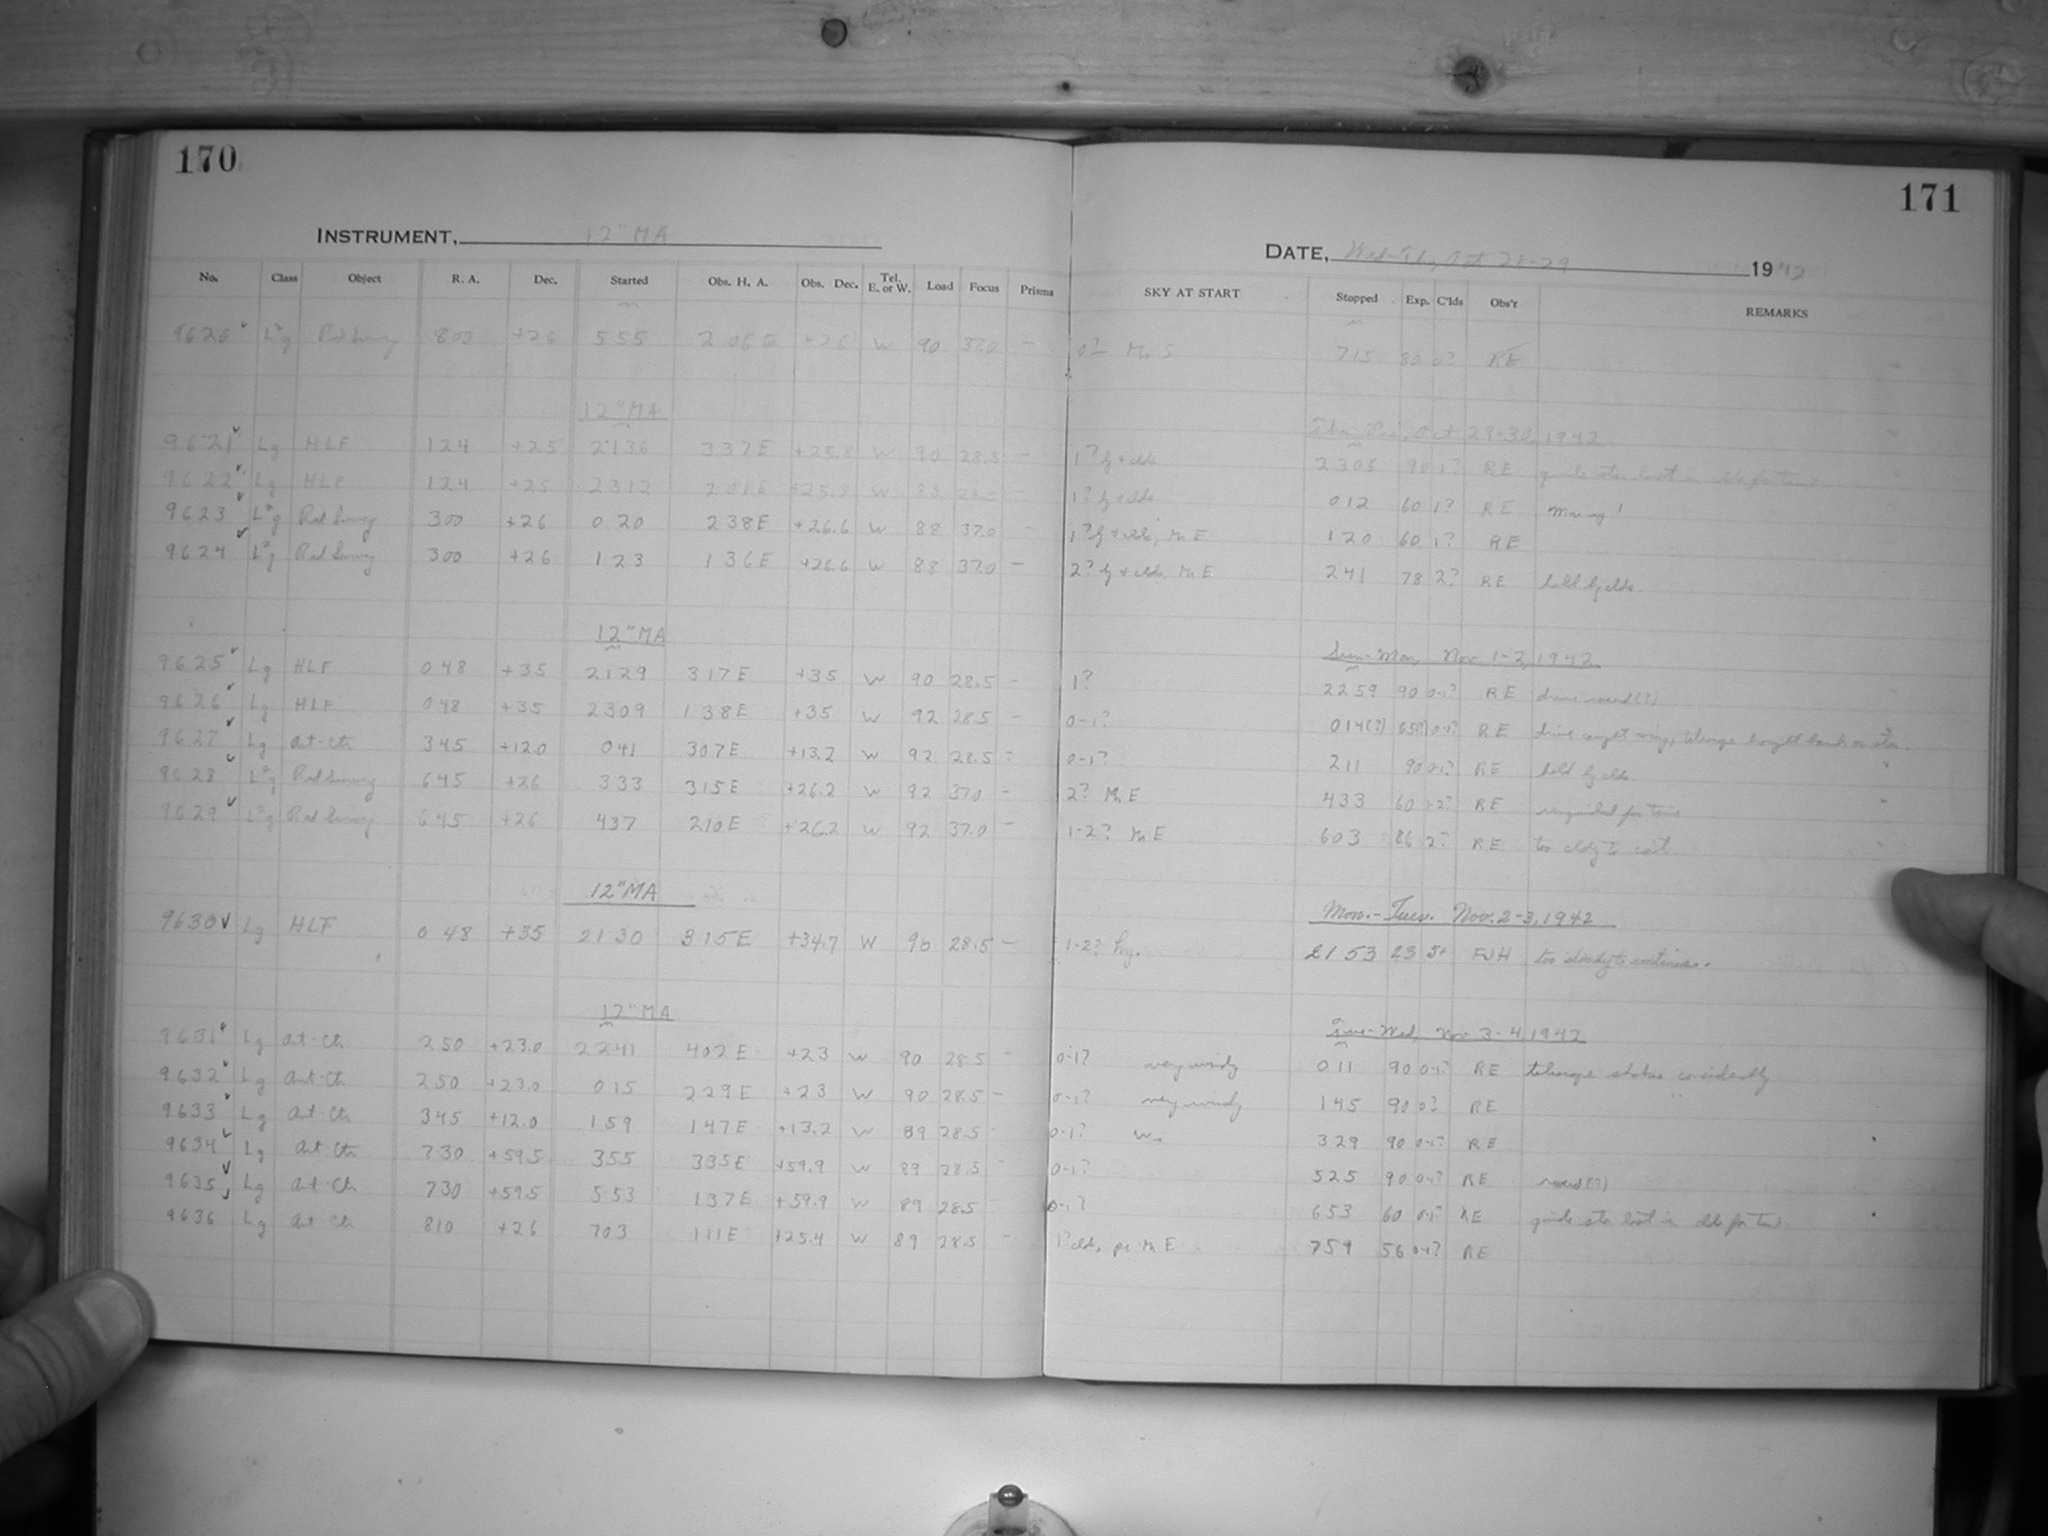 170
171
INSTRUMENT, 12" MA
DATE, Wed-Thu, Oct 28-29 1942
No. Class Object R. A. Dec. Started Obs. H. A. Obs. Dec. Tel. E. or W. Load Focus Prisms SKY AT START Stopped Exp. C'lds Obs'r REMARKS
9620 L²g Rad Survey 800 +26 555 206E +26 W 90 37.0 - 0? Mn S 715 80 0? RE
12" MA Oct 29-30, 1942
9621 Lg HLF 124 +25 2136 337E +25.8 W 90 28.5 - 1? 2305 90 1? RE guide star lost in clds for time
9622 Lg HLF 124 +25 2312 201E +25.8 W 88 28.5 - 1? 012 60 1? RE
9623 L²g Rad Survey 300 +26 020 238E +26.6 W 88 37.0 - 1? Mn E 120 60 1? RE
9624 L²g Rad Survey 300 +26 123 136E +26.6 W 88 37.0 - 2? Mn E 241 78 2? RE held by clds
12" MA Sun-Mon, Nov 1-2, 1942
9625 Lg HLF 048 +35 2129 317E +35 W 90 28.5 - 1? 2259 90 0-1? RE
9626 Lg HLF 048 +35 2309 138E +35 W 92 28.5 - 0-1? 014(?) 65(?) 0-1? RE
9627 Lg Ant-Ctr 345 +12.0 041 307E +13.2 W 92 28.5 - 0-1? 211 90 0-1? RE held by clds
9628 L²g Rad Survey 645 +26 333 315E +26.2 W 92 37.0 - 2? Mn E 433 60 RE unguided for time
9629 L²g Rad Survey 645 +26 437 210E +26.2 W 92 37.0 - 1-2? Mn E 603 86 2? RE too cldy to cont
12" MA Mon.-Tues. Nov. 2-3, 1942
9630 Lg HLF 048 +35 2130 315E +34.7 W 90 28.5 - 1-2? hzy. 2153 23 5+ FJH too cloudy to continue.
12" MA Tue-Wed, Nov 3-4, 1942
9631 Lg Ant-Ctr 250 +23.0 2241 402E +23 W 90 28.5 - 0-1? very windy 011 90 0-1? RE telescope shakes considerably
9632 Lg Ant-Ctr 250 +23.0 015 229E +23 W 90 28.5 - 0-1? very windy 145 90 0? RE
9633 Lg Ant-Ctr 345 +12.0 159 147E +13.2 W 89 28.5 - 0-1? 329 90 0-1? RE
9634 Lg Ant-Ctr 730 +59.5 355 335E +59.9 W 89 28.5 - 0-1? 525 90 0-1? RE
9635 Lg Ant-Ctr 730 +59.5 553 137E +59.9 W 89 28.5 - 0-1? 653 60 0-1? RE guide star lost in clds for time
9636 Lg Ant-Ctr 810 +26 703 111E +25.4 W 89 28.5 - 1? clds, Mn E 759 56 0-1? RE